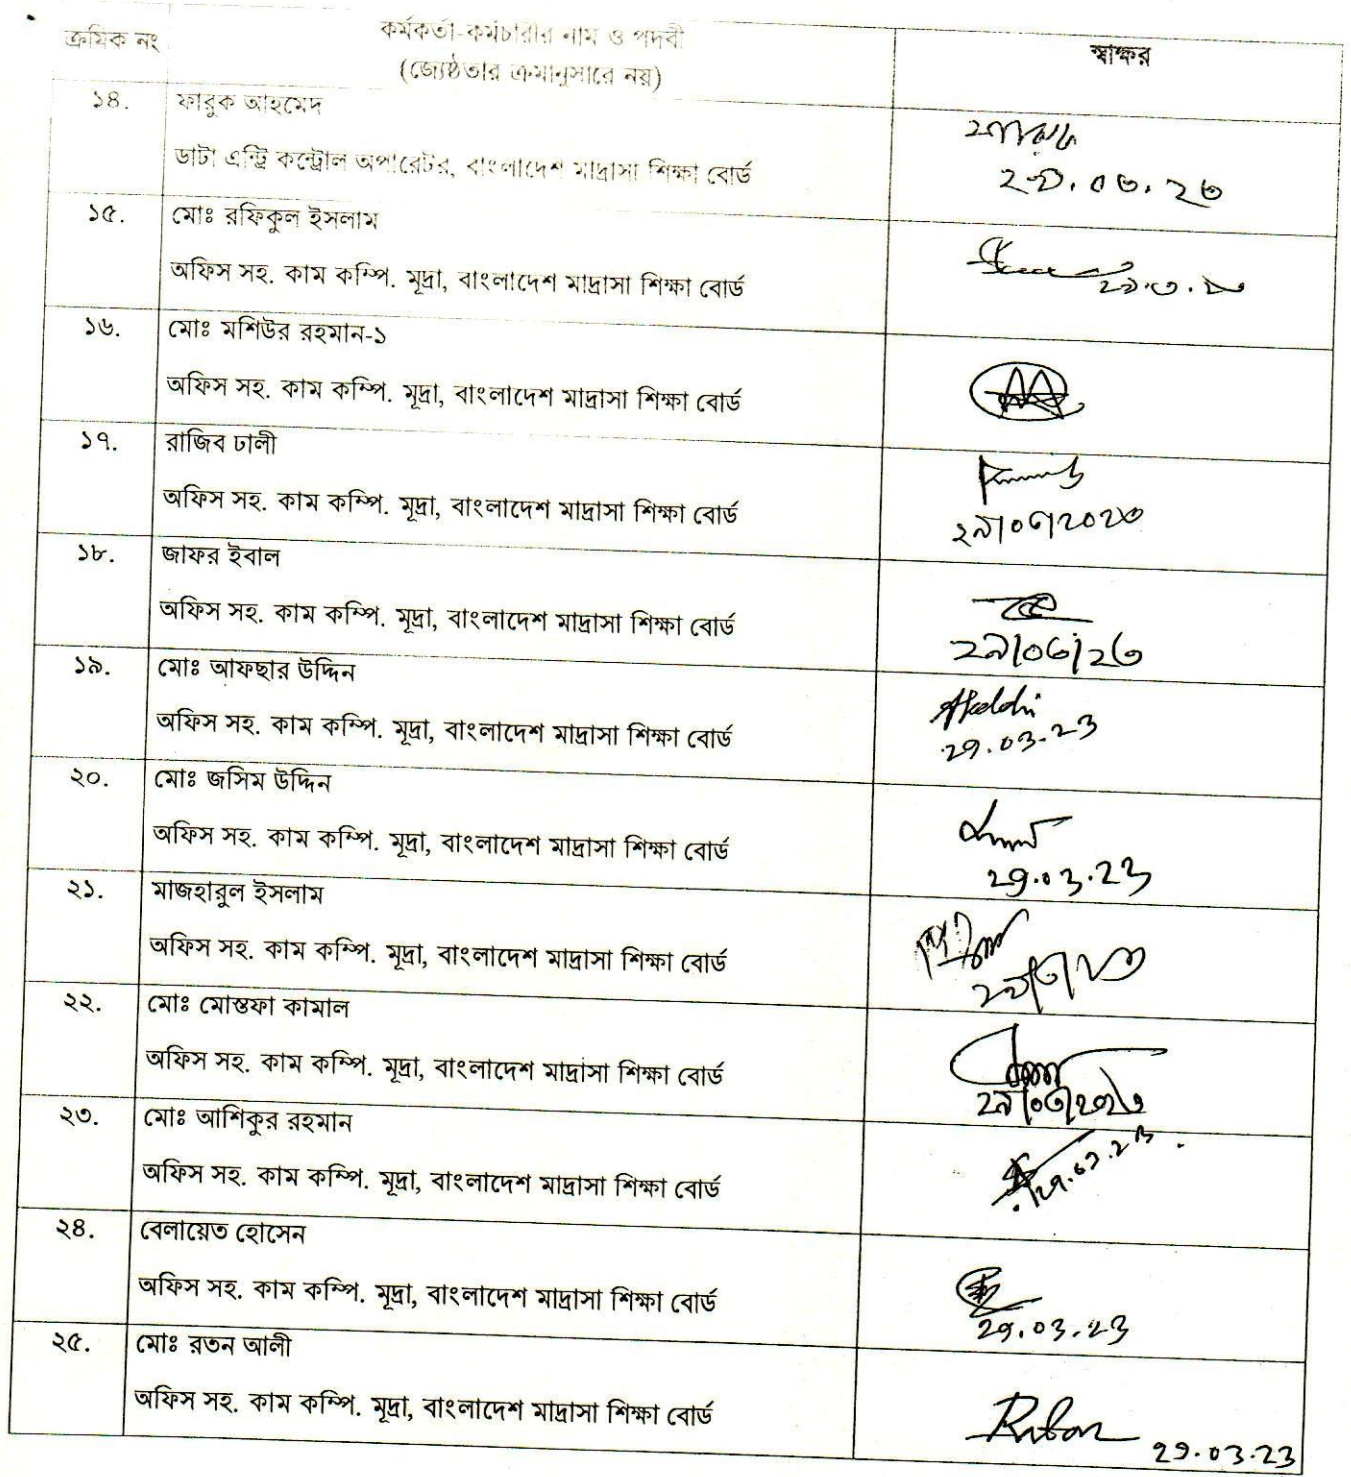 ক্রমিক নং
কর্মকর্তা-কর্মচারীর নাম ও পদবী
(জ্যেষ্ঠতার ক্রমানুসারে নয়)
স্বাক্ষর
১৪.
ফারুক আহমেদ
ডাটা এন্ট্রি কন্ট্রোল অপারেটর, বাংলাদেশ মাদ্রাসা শিক্ষা বোর্ড
ফারুক
২৯.০৩.২৩
১৫.
মোঃ রফিকুল ইসলাম
অফিস সহ. কাম কম্পি. মূদ্রা, বাংলাদেশ মাদ্রাসা শিক্ষা বোর্ড
১৬.
মোঃ মশিউর রহমান-১
অফিস সহ. কাম কম্পি. মূদ্রা, বাংলাদেশ মাদ্রাসা শিক্ষা বোর্ড
১৭.
রাজিব ঢালী
অফিস সহ. কাম কম্পি. মূদ্রা, বাংলাদেশ মাদ্রাসা শিক্ষা বোর্ড
২৯/০৩/২০২৩
১৮.
জাফর ইবাল
অফিস সহ. কাম কম্পি. মূদ্রা, বাংলাদেশ মাদ্রাসা শিক্ষা বোর্ড
২৯/০৩/২৩
১৯.
মোঃ আফছার উদ্দিন
অফিস সহ. কাম কম্পি. মূদ্রা, বাংলাদেশ মাদ্রাসা শিক্ষা বোর্ড
29.03.23
২০.
মোঃ জসিম উদ্দিন
অফিস সহ. কাম কম্পি. মূদ্রা, বাংলাদেশ মাদ্রাসা শিক্ষা বোর্ড
29.03.23
২১.
মাজহারুল ইসলাম
অফিস সহ. কাম কম্পি. মূদ্রা, বাংলাদেশ মাদ্রাসা শিক্ষা বোর্ড
২২.
মোঃ মোস্তফা কামাল
অফিস সহ. কাম কম্পি. মূদ্রা, বাংলাদেশ মাদ্রাসা শিক্ষা বোর্ড
২৯/০৩/২০২৩
২৩.
মোঃ আশিকুর রহমান
অফিস সহ. কাম কম্পি. মূদ্রা, বাংলাদেশ মাদ্রাসা শিক্ষা বোর্ড
29.03.23
২৪.
বেলায়েত হোসেন
অফিস সহ. কাম কম্পি. মূদ্রা, বাংলাদেশ মাদ্রাসা শিক্ষা বোর্ড
29.03.23
২৫.
মোঃ রতন আলী
অফিস সহ. কাম কম্পি. মূদ্রা, বাংলাদেশ মাদ্রাসা শিক্ষা বোর্ড
29.03.23